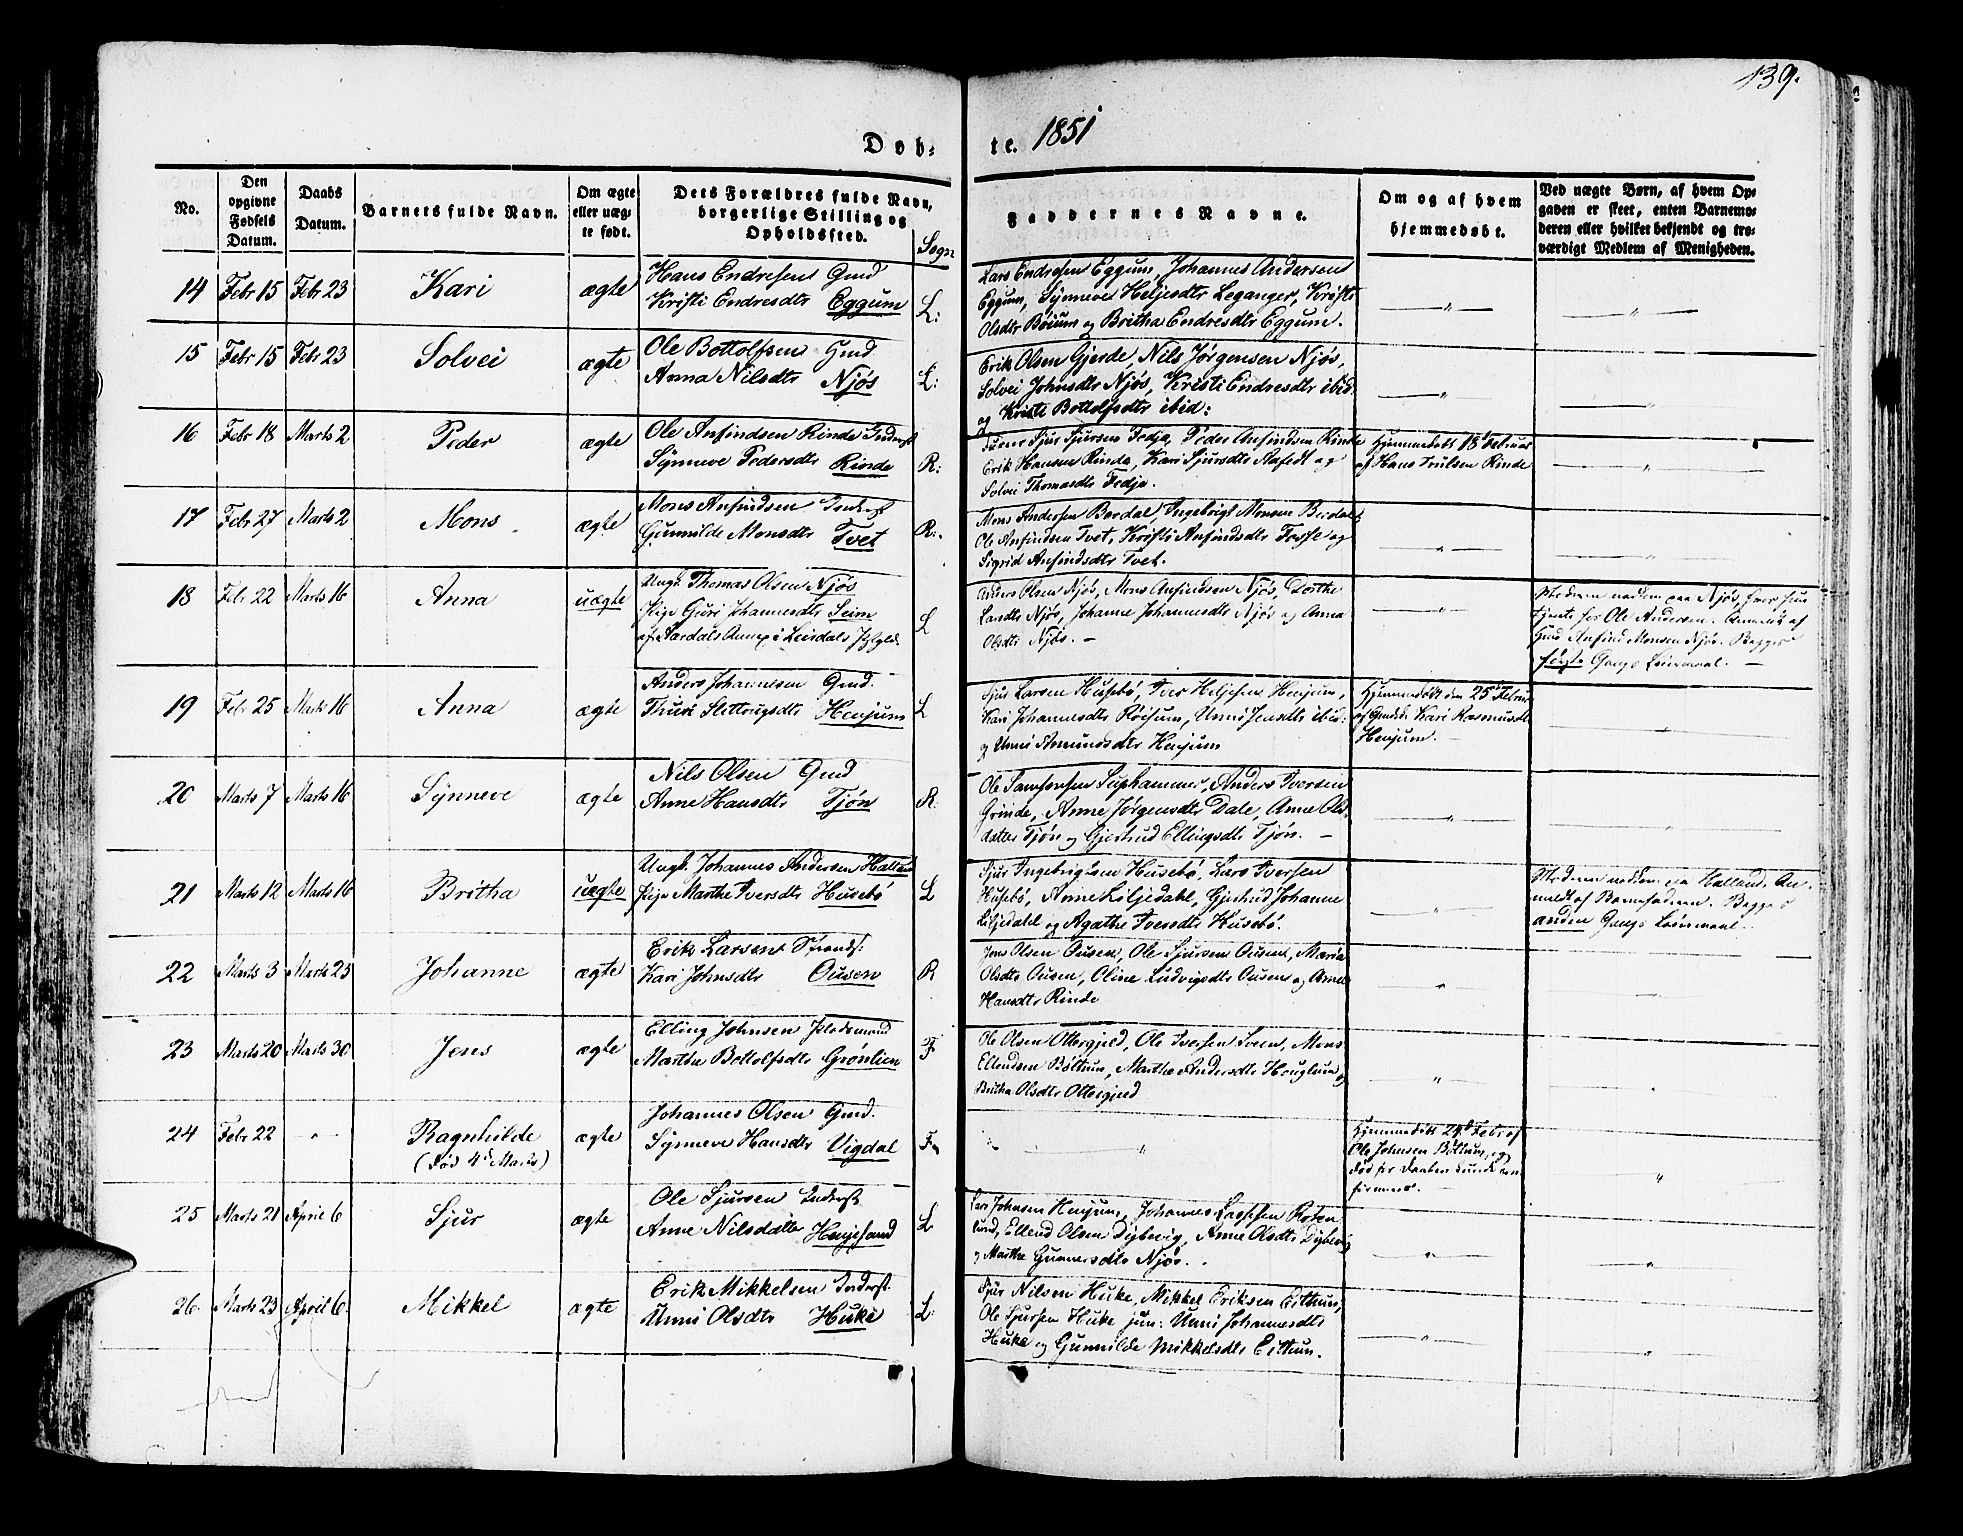 139.
Døb-
te. 1851
No.
Den opgivne Fødsels Datum.
Daabs Datum.
Barnets fulde Navn.
Om ægte eller uægte født.
Dets Forældres fulde Navn, borgerlige Stilling og Opholdssted.
Sogn
Faddernes Navne.
Om og af hvem hjemmedøbt.
Ved uægte Børn, af hvem Op-
gaven er skeet, enten Barnemo-
deren eller hvilket bekjendt og tro-
værdigt Medlem af Menigheden.
14 Febr 15 Febr 23 Kari ægte
Hans Endresen Gmd
Kristi Endresdtr Eggum L:
Lars Endresen Eggum, Johannes Andersen
Eggum, Synneve Heljesdtr Leganger, Kristi
Olsdtr Böium og Britha Endresdtr Eggum.
15 Febr 15 Febr 23 Solvei ægte
Ole Bottolfsen Gmd
Anna Nilsdtr Njøs L:
Erik Olsen Gjerde, Nils Jørgensen Njøs,
Solvei Johnsdtr Njøs, Kristi Endresdtr ibid
og Kristi Bottolfsdtr ibid:
16 Febr 18 Marts 2 Peder ægte
Ole Anfindsen Rinde Inderst
Synneve Pedersdtr Rinde R:
Sjur Sjursen Fedje, Peder Anfindsen Rinde
Erik Hansen Rinde, Kari Sjursdtr Aafedt og
Solvei Thomasdtr Fedje.
Hjemmedøbt 18 Februar
af Hans Trulsen Rinde
17 Febr 27 Marts 2 Mons ægte
Mons Anfindsen Inderst
Gunnilde Monsdtr Tvet R:
Mons Andersen Berdal, Ingebrigt Monsen Berdal,
Ole Anfindsen Tvet, Kristi Anfindsdtr Fosse og
Sigrid Anfindsdtr Tvet.
18 Febr 22 Marts 16 Anna uægte
Ungk. Thomas Olsen Njøs
Pige Guri Johannesdtr Seim
af Aardals Annex i Leirdals Pgjeld. L
Anders Olsen Njøs, Mons Anfindsen Njøs, Dorthe
Larsdtr Njøs, Johanne Johannesdtr Njøs og Anna
Olsdtr Njøs. —
Moderen nedkom paa Njøs, hvor hun
tjente for Ole Andersen. Anmeldt af
Gmd Anfind Monsen Njøs. Begges
første Gangs Leiermaal. —
19 Febr 25 Marts 16 Anna ægte
Anders Johannesen Gmd.
Thuri Sletteugsdtr Henjum L
Sjur Larsen Husebö, Iver Heljesen Henjum,
Kari Johannesdtr Röisum, Unni Jensdtr ibid.
og Unni Amundsdtr Henjum
Hjemmedøbt den 25 Februar
af Gmdsk. Kari Rasmusdtr
Henjum. —
20 Marts 7 Marts 16 Synneve ægte
Nils Olsen Gmd
Anne Hansdtr Tjøn R:
Ole Samsonsen Suphammer, Anders Iversen
Grinde, Anne Jørgensdtr Dale, Anne Ols-
datter Tjøn og Gjertrud Ellingsdtr Tjøn. —
21 Marts 12 Marts 16 Britha uægte
Ungk. Johannes Andersen Halland
Pige Marthe Iversdtr Husebö L
Sjur Ingebrigtsen Husebö, Lars Iversen
Husebö, Anne Liljedahl, Gjertrud Johanne
Liljedahl og Agathe Iversdtr Husebö.
Moderen nedkom paa Halland, An-
meldt af Barnefaderen. Begges
anden Gangs Leiermaal.
22 Marts 3 Marts 23 Johanne ægte
Erik Larsen Strands:
Kari Johnsdtr Ousen R
Jens Olsen Ousen, Ole Sjursen Ousen, Maria
Olsdtr Ousen, Oline Ludvigsdtr Ousen og Anne
Hansdtr Rinde
23 Marts 20 Marts 30 Jens ægte
Elling Johnsen Pladsmand
Marthe Bottolfsdtr Grønlien F
Ole Olsen Ottergjeld, Ole Iversen Sveen, Mons
Ellendsen Böttum, Marthe Andersdtr Houglum og
Britha Olsdtr Ottergjeld
24 Febr 22 Ragnhilde ægte
(Død 4de Marts)
Johannes Olsen Gmd.
Synneve Hansdtr Vigdal F
Hjemmedøbt 24de Febr af
Ole Johnsen Böttum, og
død før Daaben kunde con-
firmeres.
25 Marts 21 April 6 Sjur ægte
Ole Sjursen Inderst
Anne Nilsdatter Henjesand L
Lars Johnsen Henjum, Johannes Lassesen Roten-
lund, Ellend Olsen Dybevig, Anne Olsdtr Dybevig
og Marthe Gunnersdtr Njøs.
26 Marts 23 April 6 Mikkel ægte
Erik Mikkelsen Inderst
Unni Olsdtr Huke L
Sjur Nilsen Huke, Mikkel Eriksen Eithun,
Ole Sjursen Huke jun: Unni Johannesdtr
Huke og Gunnilde Mikkelsdtr Eithun.